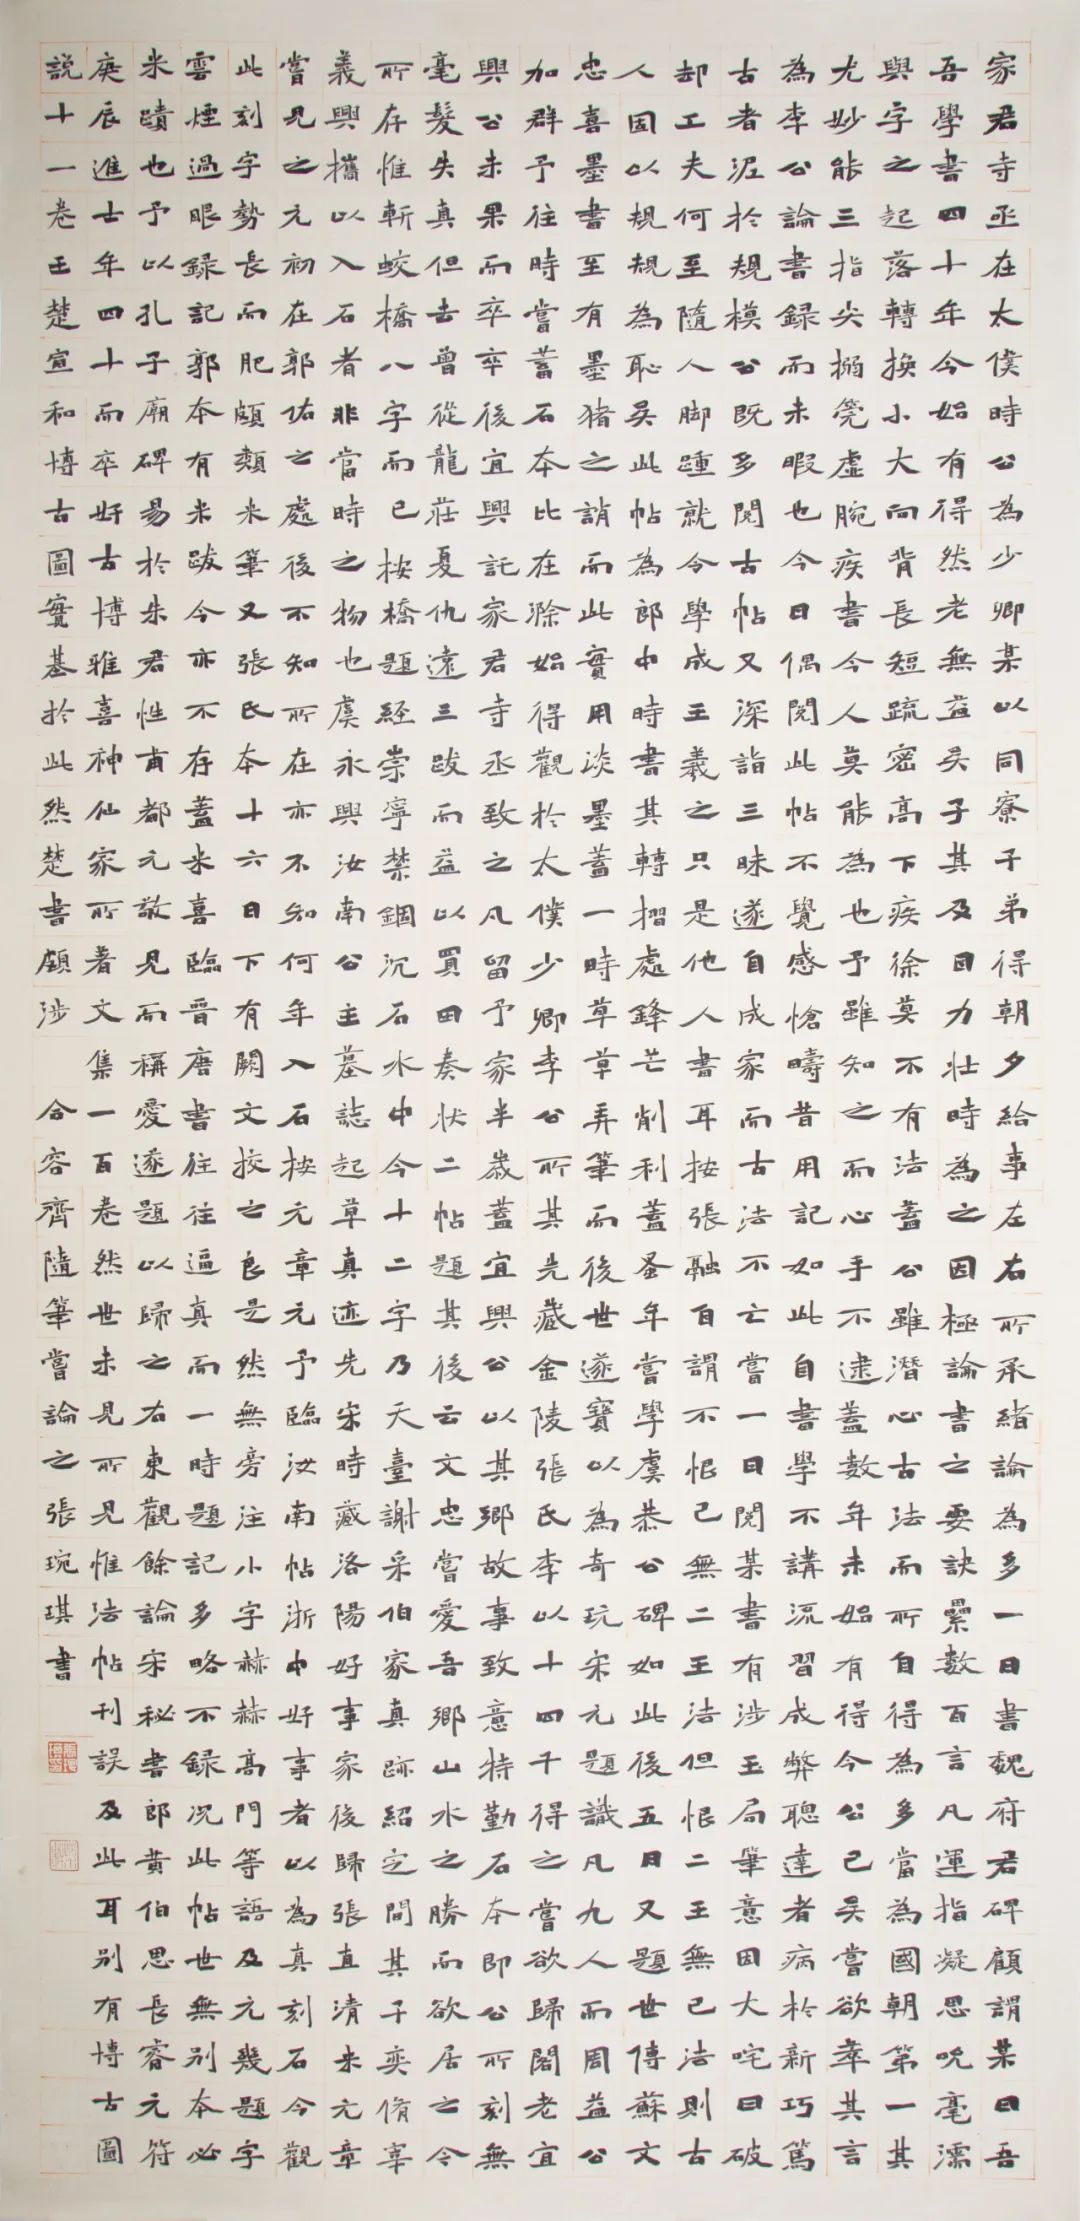 家君寺丞在太僕時公為少卿某以同寮子弟得朝夕給事左右所承緒論為多一日書魏府君碑顧謂某曰吾
吾學書四十年今始有得然老無益矣子其及目力壯時為之因極論書之要訣纍數百言凡運指凝思吮毫濡
與字之起落轉換小大向背長短疏密高下疾徐莫不有法蓋公雖潛心古法而所自得為多當為國朝第一其
尤妙能三指尖搦筦虛腕疾書今人莫能為也予雖知之而心手不逮蓋數年未始有得今公已矣嘗欲萃其言
為李公論書錄而未暇也今日偶閱此帖不覺感愴疇昔用記如此自書學不講流習成弊聰達者病於新巧篤
古者泥於規模公既多閱古帖又深詣三昧遂自成家而古法不亡嘗一日閱某書有涉玉局筆意因大咤曰破
却工夫何至隨人脚踵就令學成王羲之只是他人書耳按張融自謂不恨己無二王法但恨二王無己法則古
人固以規規為恥矣此帖為郎中時書其轉摺處鋒芒削利蓋蚤年嘗學虞恭公碑如此後五月又題世傳蘇文
忠喜墨書至有墨猪之誚而此實用淡墨蓋一時草草弄筆而後世遂寶以為奇玩宋元題識凡九人而周益公
加群予往時嘗蓄石本比在滁始得觀於太僕少卿李公所其先藏金陵張氏李以十四千得之嘗欲歸閣老宜
興公未果而卒卒後宜興託家君寺丞致之凡留予家半歲蓋宜興公以其鄉故事致意特勤石本即公所刻無
毫髮失真但去曾從龍莊夏仇遠三跋而益以買田奏狀二帖題其後云文忠嘗愛吾鄉山水之勝而欲居之今
所存惟斬蛟橋八字而已按橋題經崇寧禁錮沉石水中今十二字乃天臺謝采伯家真跡紹定間其子奕脩宰
義興攜以入石者非當時之物也虞永興汝南公主墓誌起草真迹先宋時藏洛陽好事家後歸張直清米元章
嘗見之元初在郭佑之處後不知所在亦不知何年入石按元章元予臨汝南帖浙中好事者以為真刻石今觀
此刻字勢長而肥頗類米筆又張氏本十六日下有闕文按之良是然無旁注小字赫赫高門等語及元幾題字
雲煙過眼錄記郭本有米跋今亦不存蓋米喜臨晉唐書往往逼真而一時題記多略不錄況此帖世無別本必
米蹟也予以孔子廟碑易於朱君性甫都元敬見而稱愛遂題以歸之右東觀餘論宋秘書郎黃伯思長睿元符
庚辰進士年四十而卒好古博雅喜神仙家所著文集一百卷然世未見所見惟法帖刊誤及此耳別有博古圖
說十一卷王楚宣和博古圖實基於此然楚書頗涉 合容齊隨筆嘗論之張琬琪書